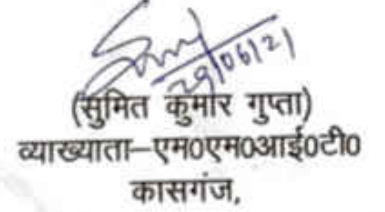 29/06/21
(सुमित कुमार गुप्ता)
व्याख्याता–एम0एम0आई0टी0
कासगंज,